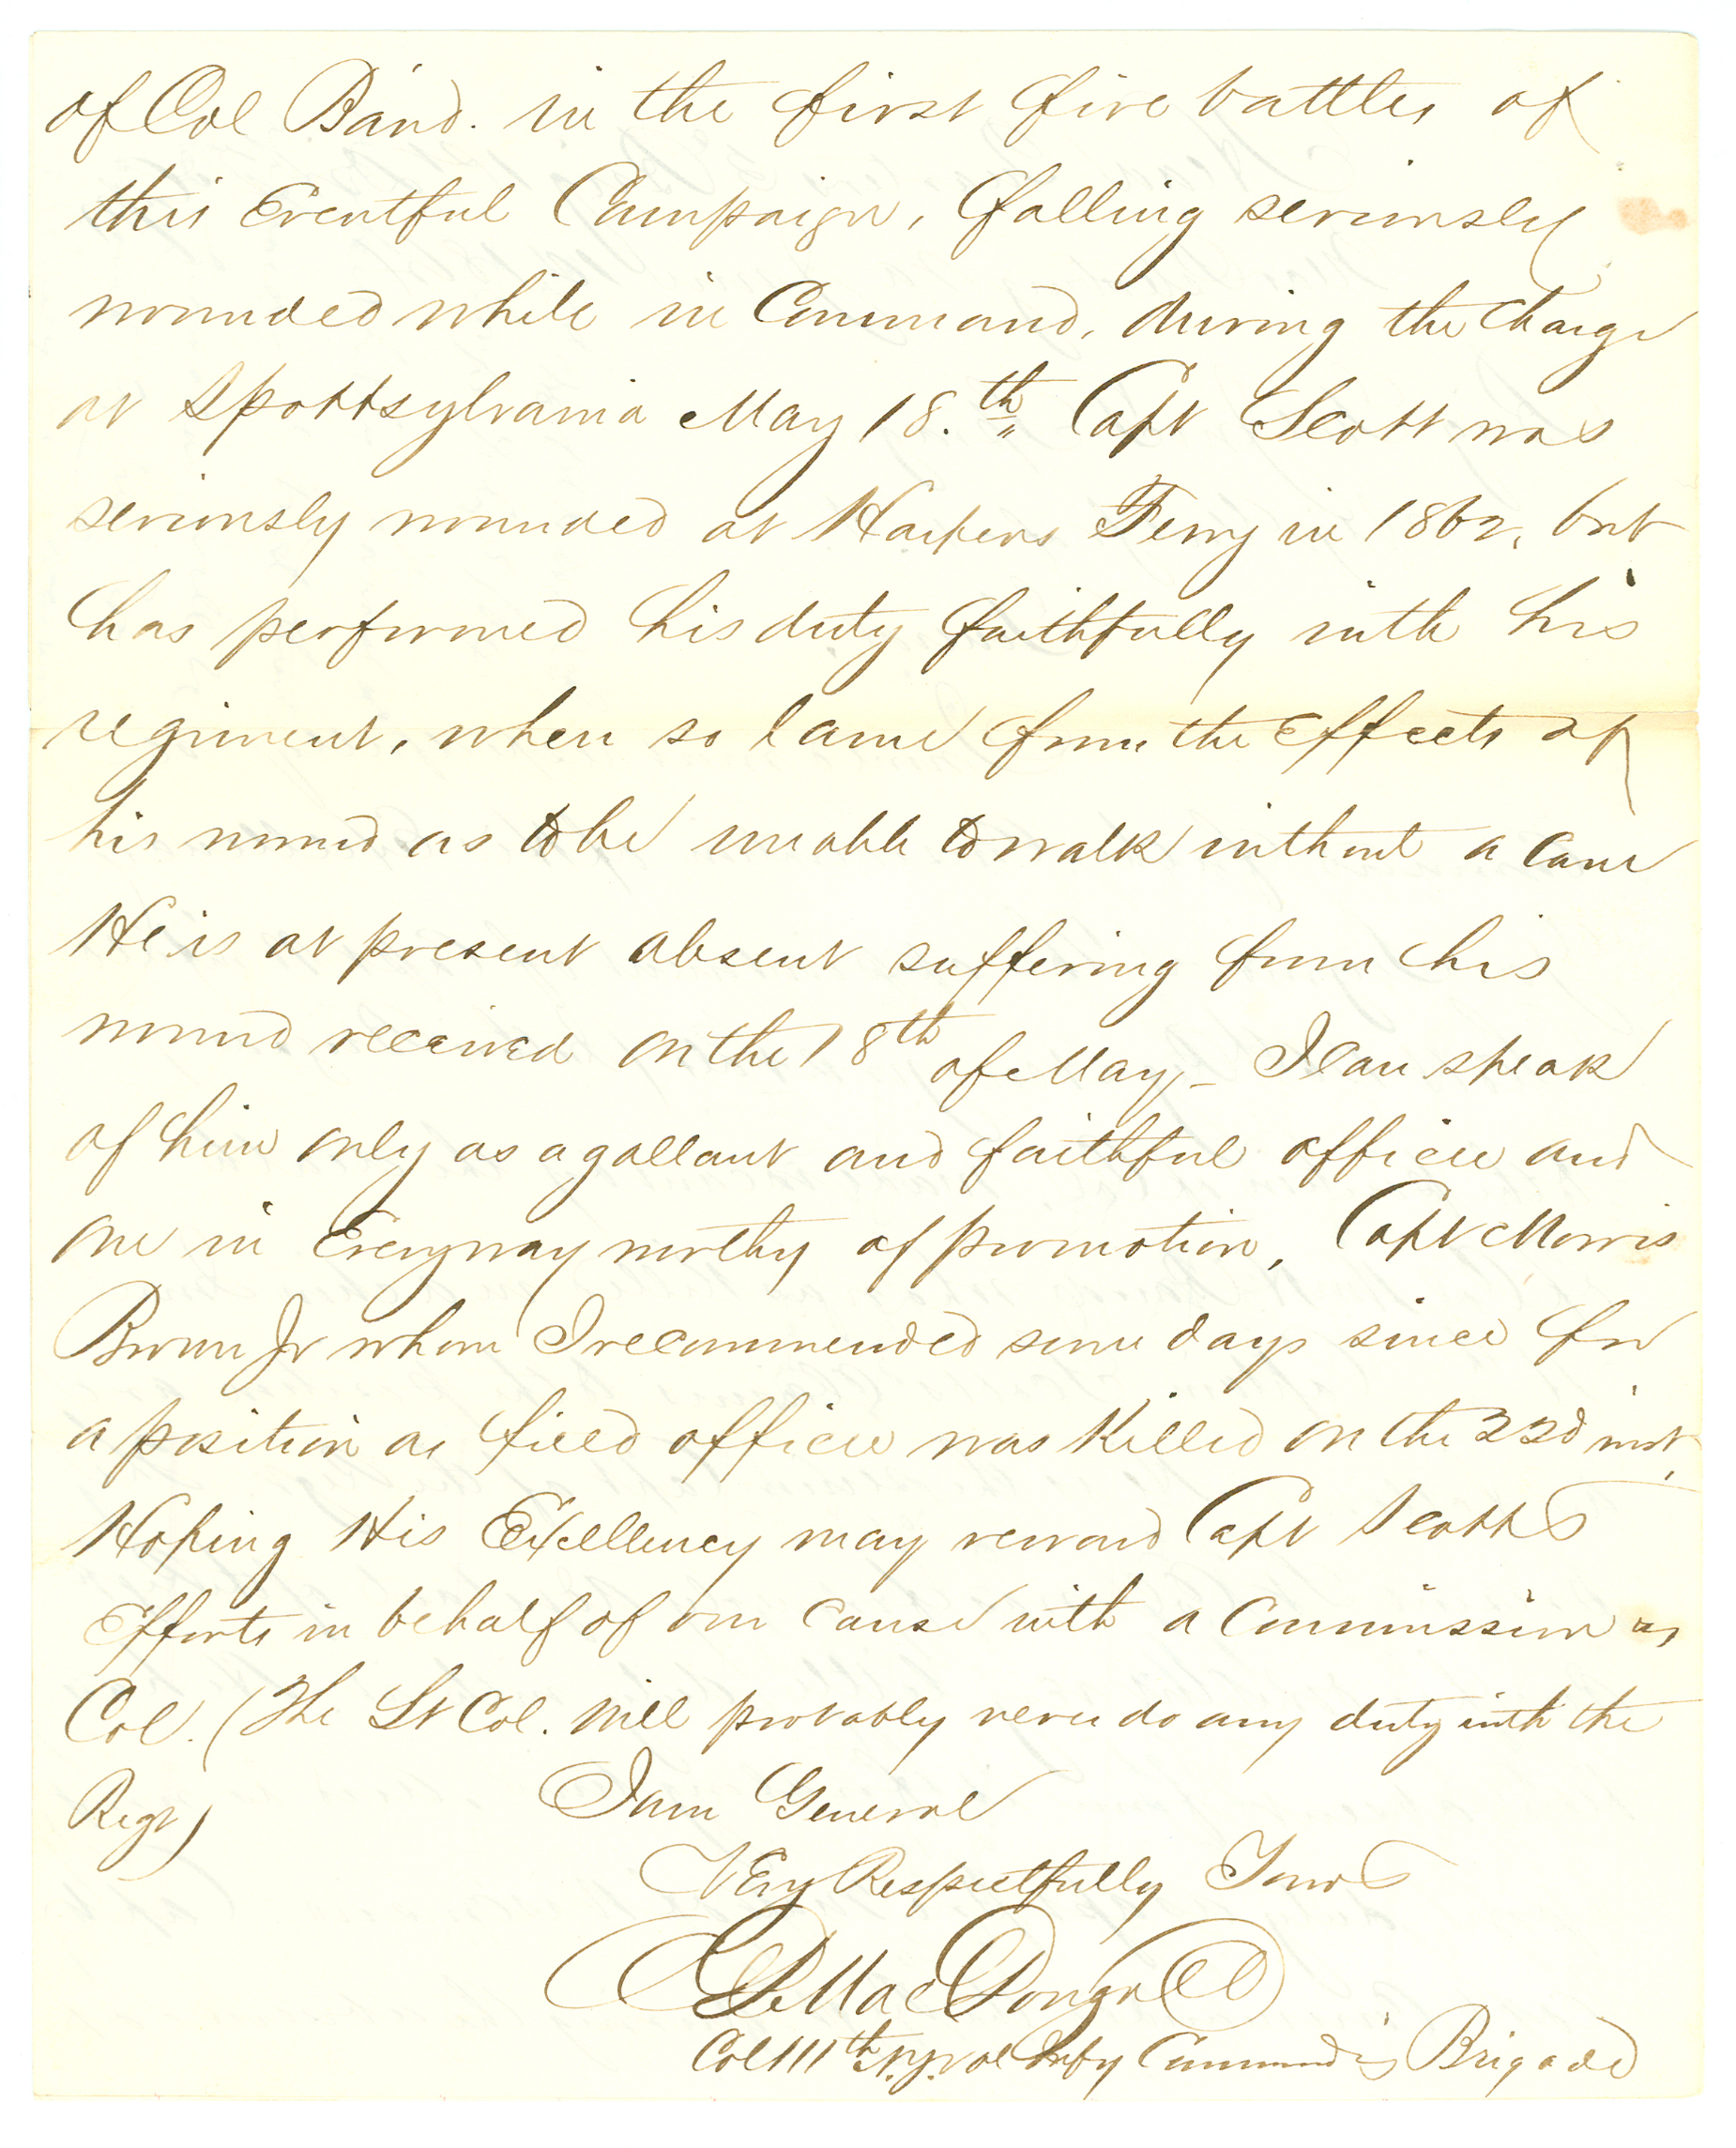 of Col Baird. in the first five battles of
this Eventful Campaign, falling seriously
wounded while in Command, during the Charge
at Spottsylvania May 18.th Capt Scott was
seriously wounded at Harpers Ferry in 1862, but
has performed his duty faithfully with his
regiment, when so lame from the effects of
his wound as to be unable to walk without a cane
He is at present absent suffering from his
wound received on the 18th of May - I can speak
of him only as a gallant and faithful officer and
one in Every way worthy of promotion, Capt Morris
Brown Jr whom I recommended some days since for
a position as field officer was Killed on the 22d inst,
Hoping His Excellency may reward Capt Scotts
Efforts in behalf of our Cause with a Commission as
Col. (The Lt Col. will probably never do any duty with the
Regt)
I am General
Very Respectfully Yours
C D MacDougall
Col 111th N.Y. Vol Infty Commandig Brigade